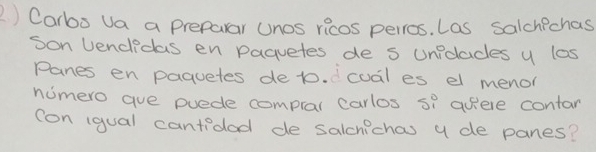 2) Carlos va a preparar unos ricos perros. Las salchichas
son vendidas en paquetes de 5 unidades y los
Panes en paquetes de 10. ¿cuál es el menor
número que puede comprar Carlos si quiere contar
con igual cantidad de salchichas y de panes?